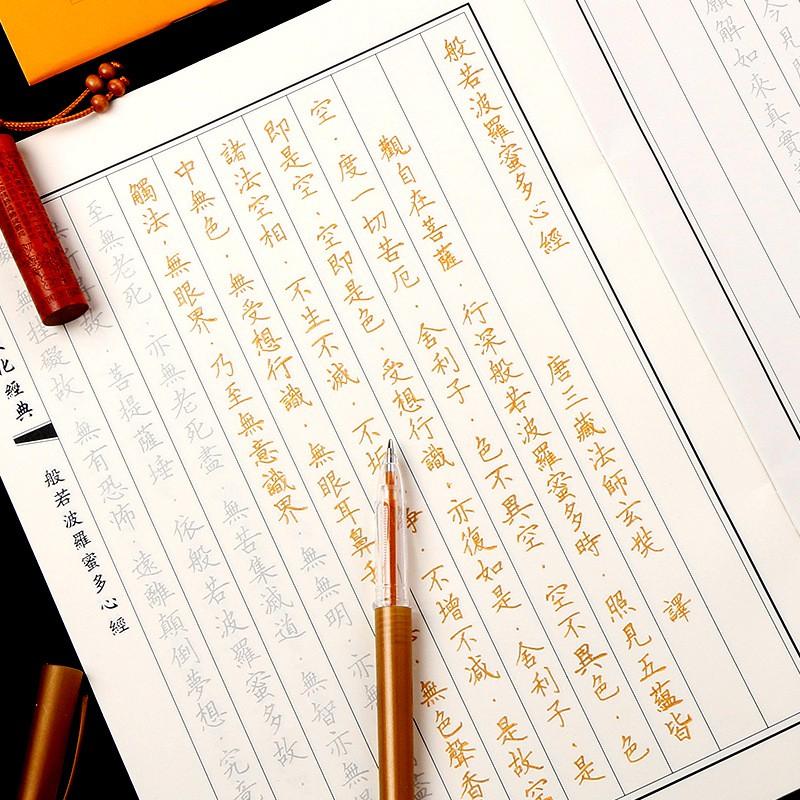 今見聞
願解如來真實
般若波羅蜜多心經
唐三藏法師玄奘 譯
觀自在菩薩．行深般若波羅蜜多時．照見五蘊皆
空．度一切苦厄．舍利子．色不異空．空不異色．色
即是空．空即是色．受想行識．亦復如是．舍利子．是
諸法空相．不生不滅．不垢 淨．不增不減．是故空
中無色．無受想行識．無眼耳鼻舌 無色聲香
觸法．無眼界．乃至無意識界．無無明．亦無
至無老死．亦無老死盡．無苦集滅道．無智亦無
得故．菩提薩埵．依般若波羅蜜多故
無挂礙故．無有恐怖．遠離顛倒夢想．究竟
化經典
般若波羅蜜多心經